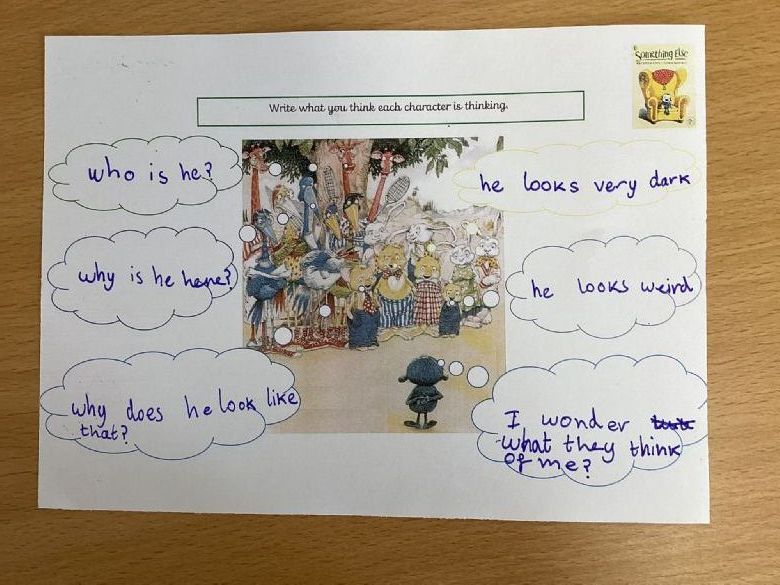 Something Else
Write what you think each character is thinking.
who is he?
he looks very dark
why is he here?
he looks weird
why does he look like
that?
I wonder
what they think
of me?